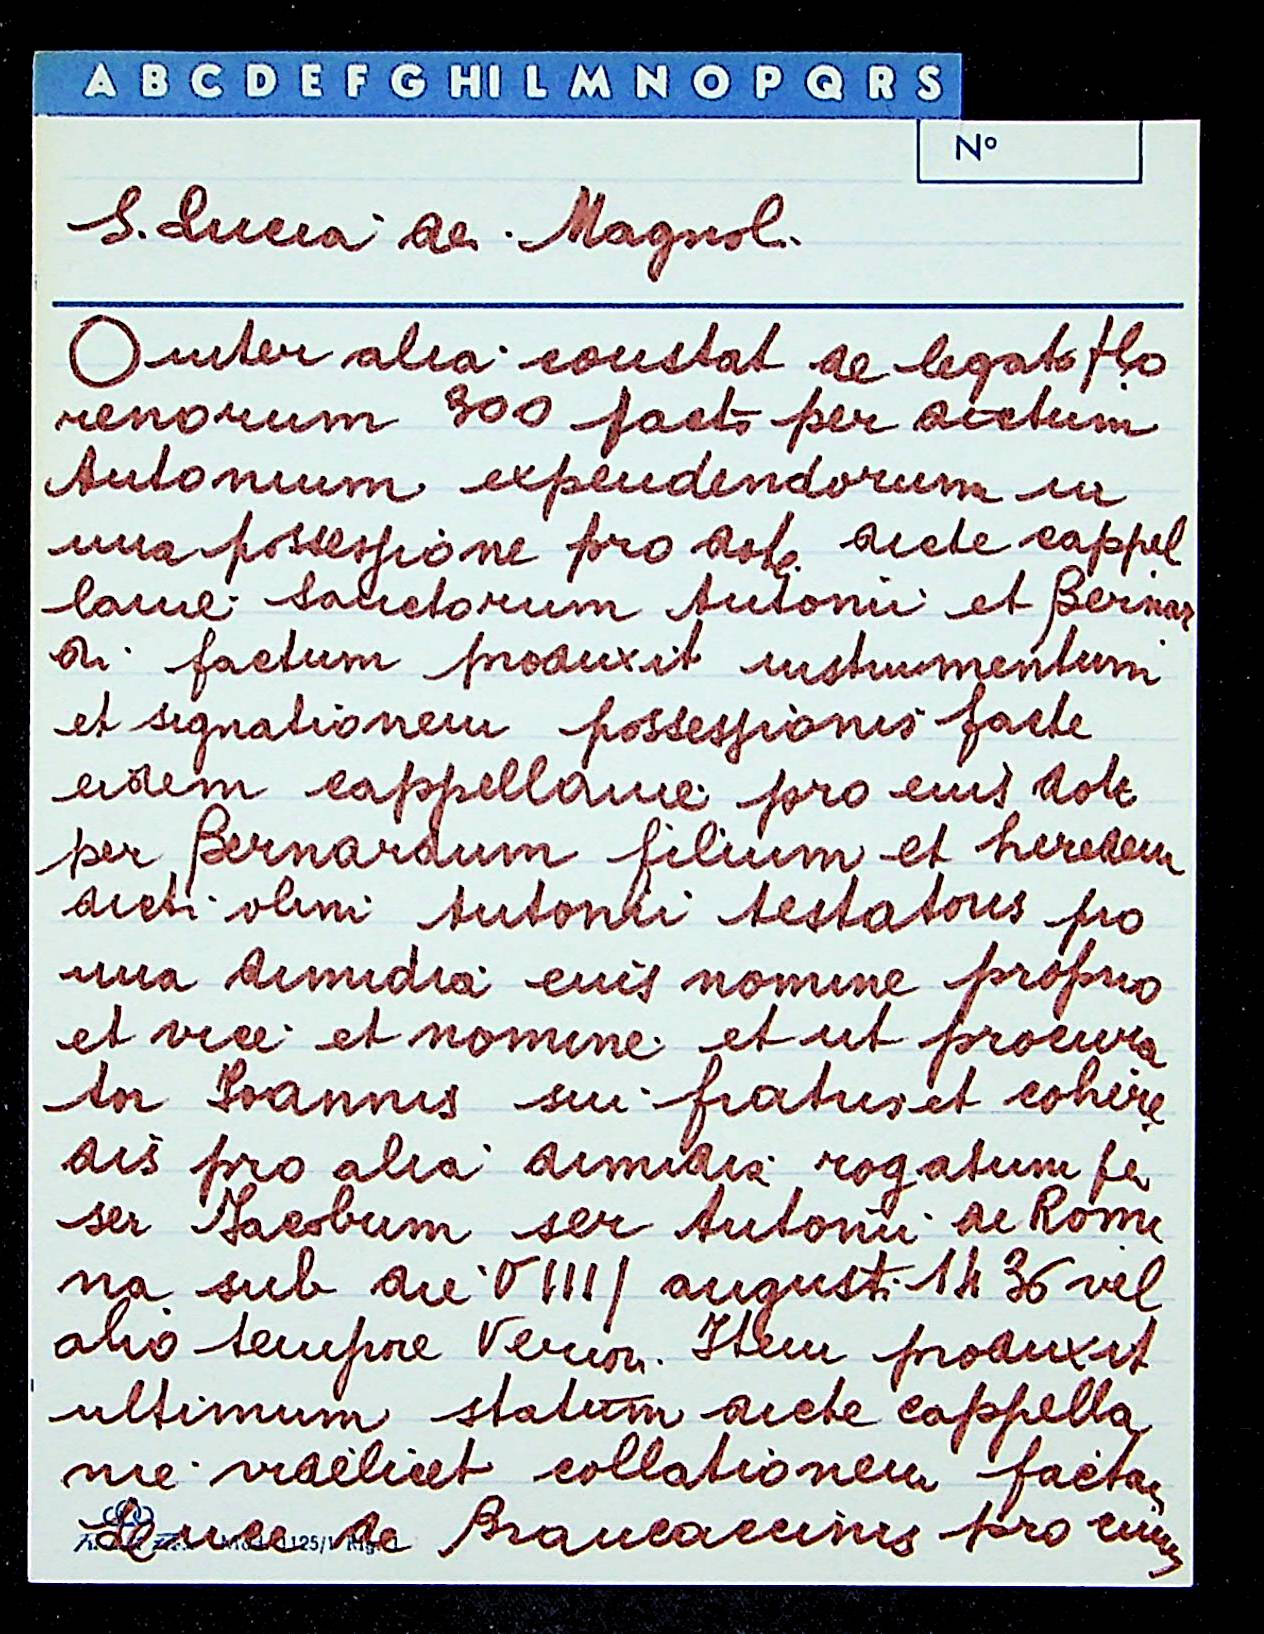 A B C D E F G H I L M N O P Q R S
Nº
S. Lucia de Magnol.
O inter alia constat de legato flo
renorum 300 facto per dictum
Antonium expendendorum in
una possessione pro dote dicte cappel
lanie sanctorum Antonii et Bernar
di factum produxit instrumentum
et signationem possessionis facte
eidem cappellanie pro eius dote
per Bernardum filium et heredem
dicti olim Antonii testatoris pro
una dimidia euis nomine proprio
et vice et nomine et ut procura
tor Ioannis sui fratris et cohere
dis pro alia dimidia rogatum pe
ser Iacobum ser Antonii de Rome
na sub die VIII augusti 1436 vel
alio tempore verior. Item produxit
ultimum statum dicte cappella
nie videlicet collationem factam
de Brancaccinis pro